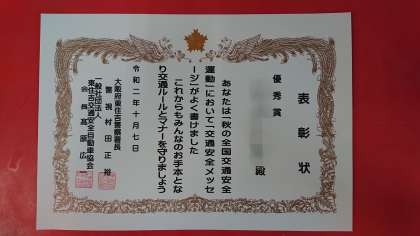 表彰状
優秀賞
殿
あなたは「秋の全国交通安全
運動」において「交通安全メッセ
ージ」がよく書けました
これからもみんなのお手本とな
り交通ルールとマナーを守りましょう
令和二年十月七日
大阪府東住吉警察署長
警視 村田正裕
一般社団法人
東住吉交通安全自動車協会
会長 髙原広一